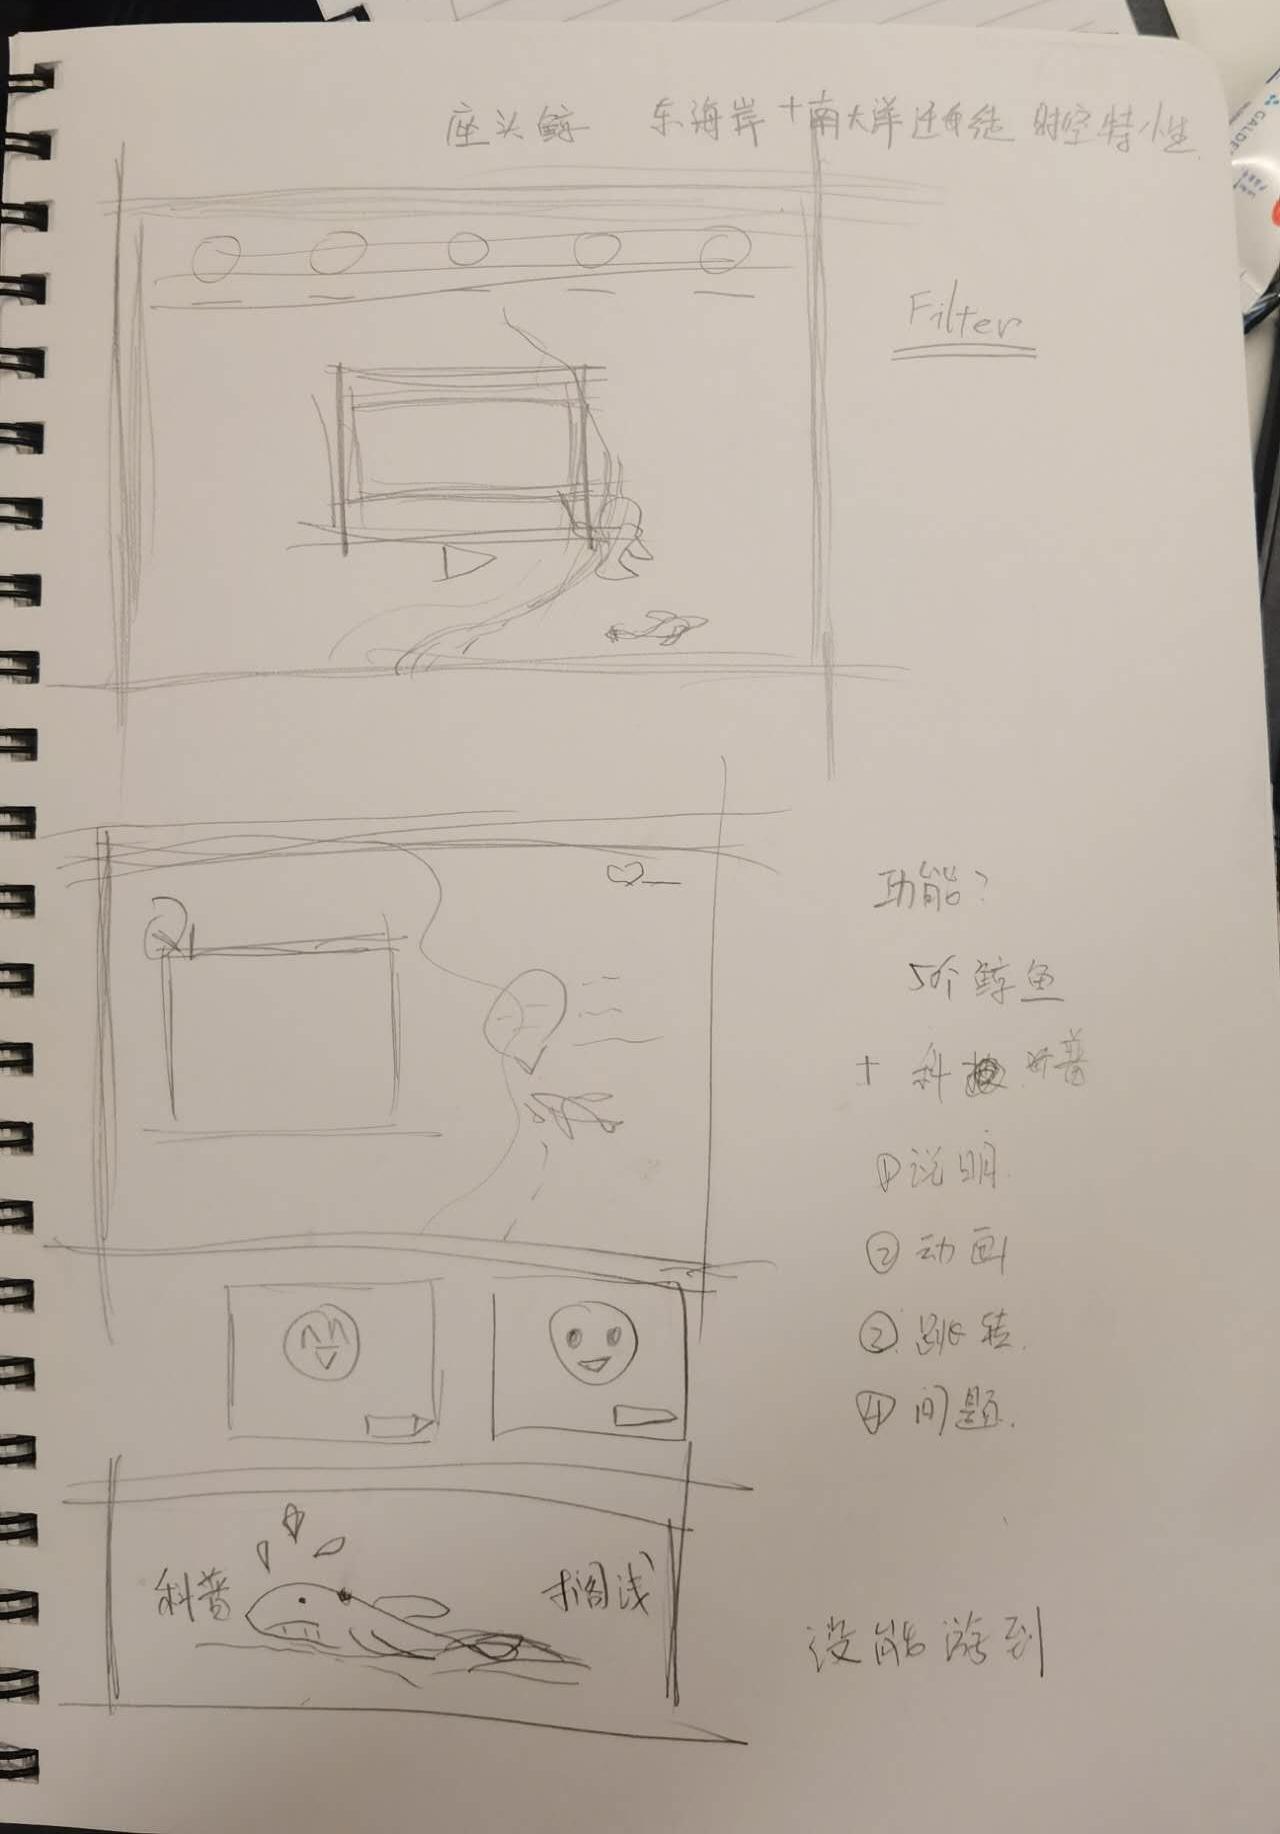 座头鲸 东海岸+南大洋迁徙 时空特性
Filter
功能?
5个鲸鱼
+ 科普
①说明
②动画
③跳转
④问题
科普
搁浅
没能游到
CALDE